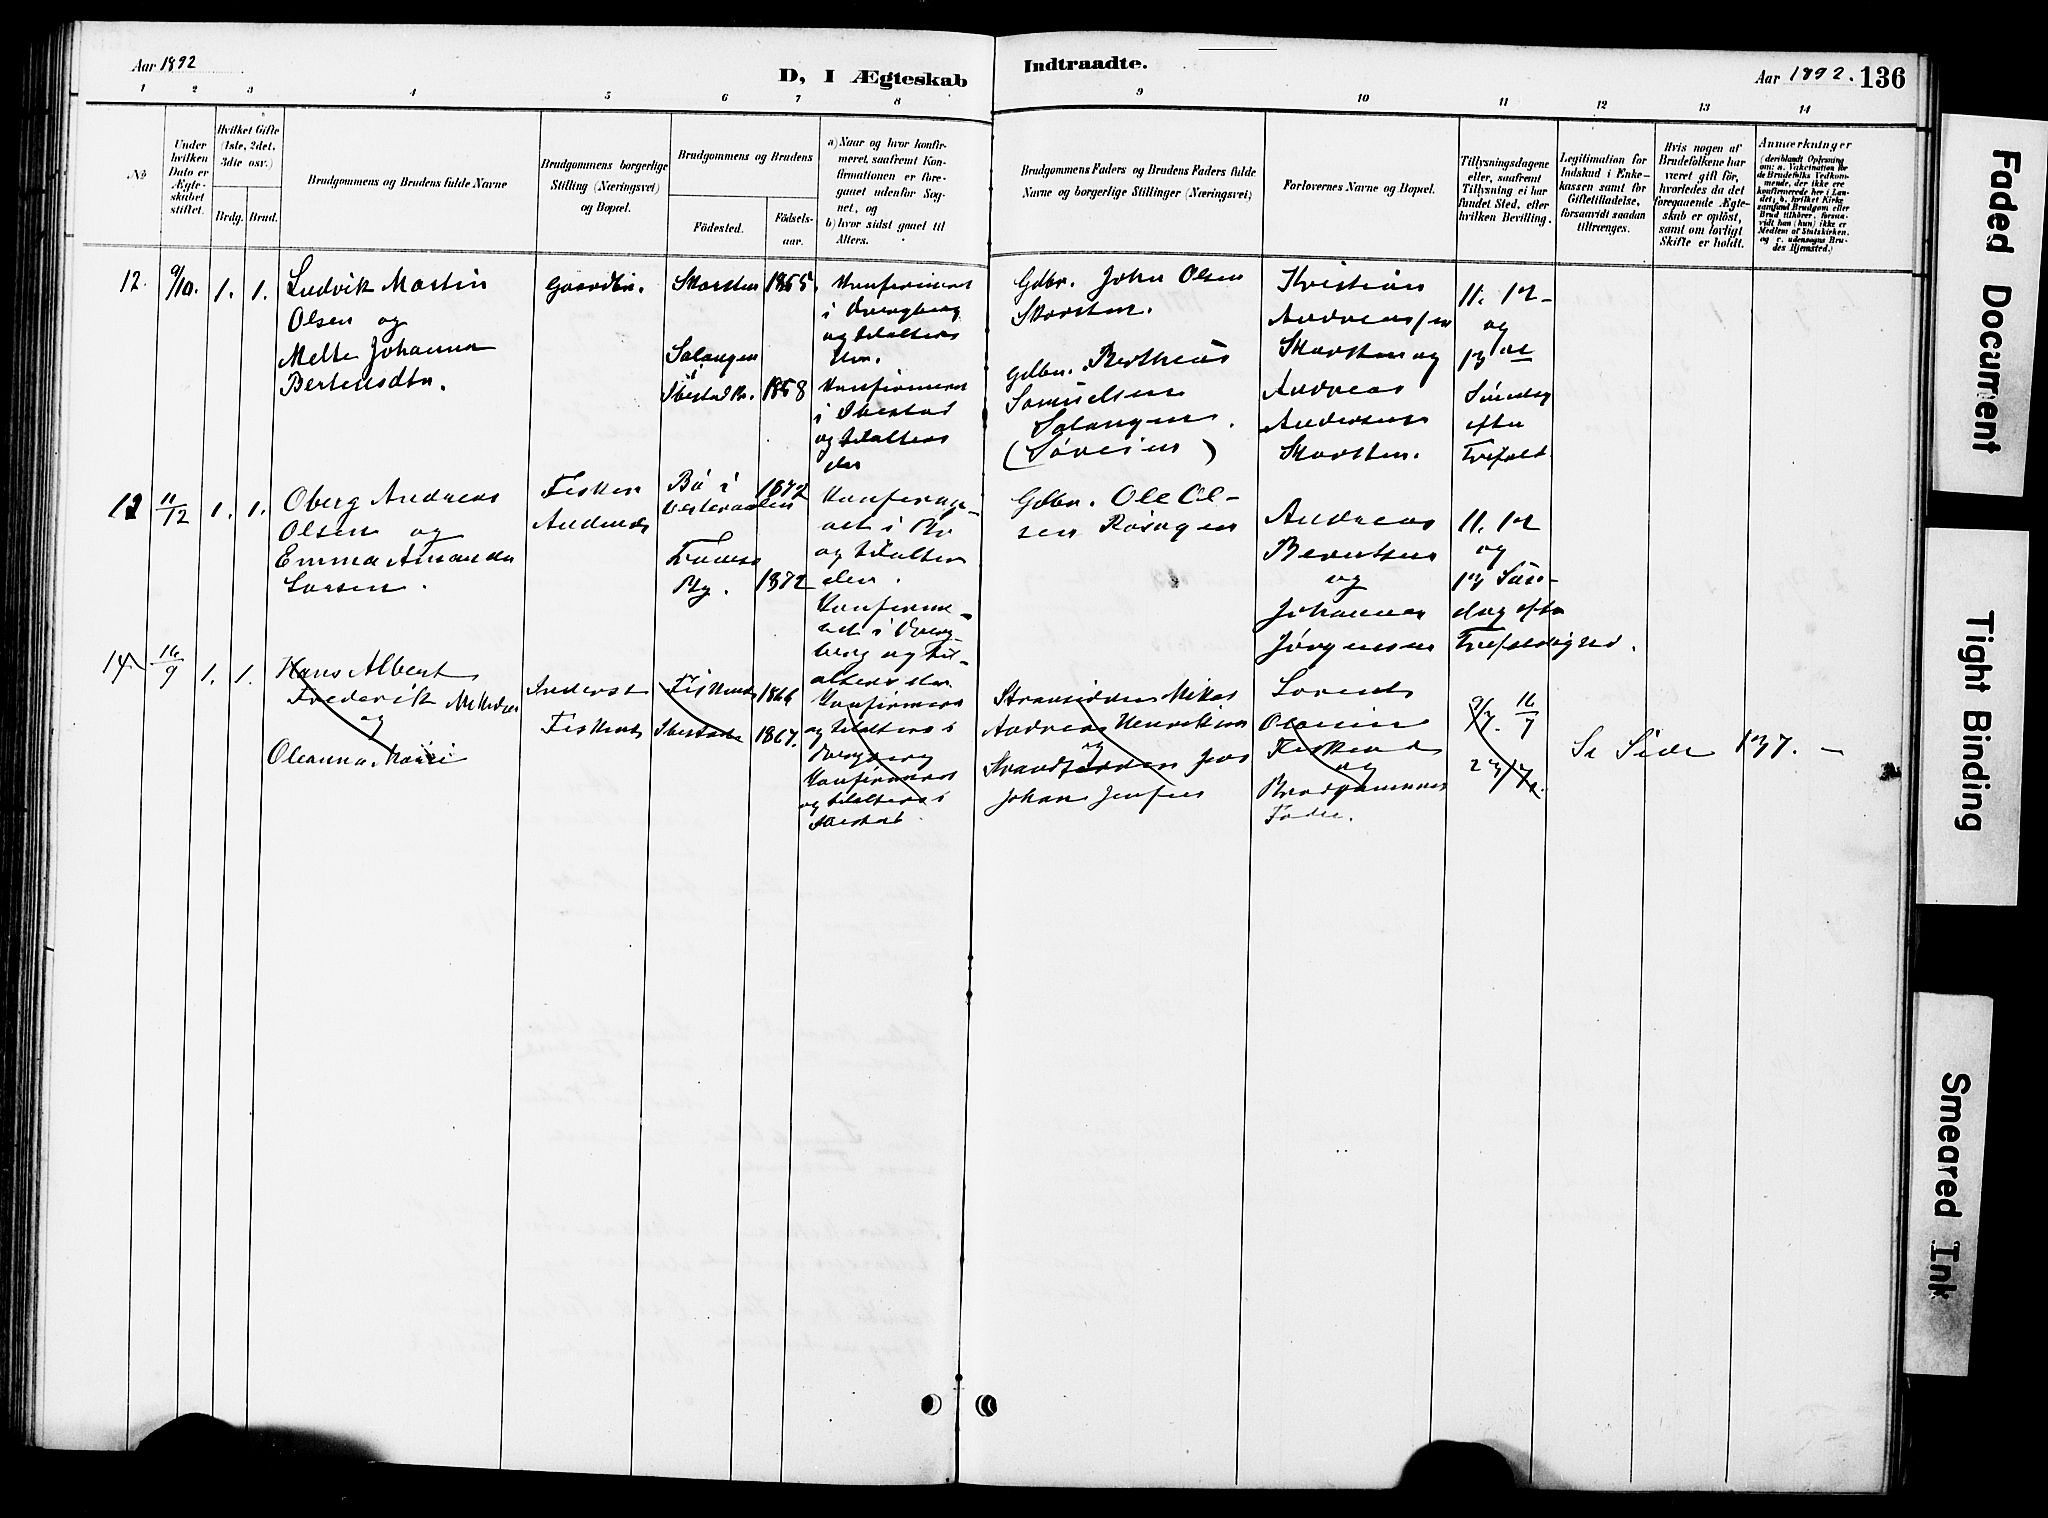 Aar 1892
D, I Ægteskab
Indtraadte.
Aar 1892. 136
1 2 3 4 5 6 7 8 9 10 11 12 13 14
No
Under hvilken Dato er Ægteskabet stiftet.
Hvilket Gifte (1ste, 2det, 3die osv.)
Brdg. Brud.
Brudgommens og Brudens fulde Navne
Brudgommens borgerlige Stilling (Næringsvei) og Bopæl.
Brudgommens og Brudens
Fødested.
Fødselsaar.
a) Naar og hvor konfirmeret, saafremt Konfirmationen er foregaaet udenfor Sognet, og
b) hvor sidst gaaet til Alters.
Brudgommens Faders og Brudens Faders fulde Navne og borgerlige Stillinger (Næringsvei)
Forlovernes Navne og Bopæl.
Tillysningsdagene eller, saafremt Tillysning ei har fundet Sted, efter hvilken Bevilling.
Legitimation for Indskud i Enkekassen samt for Giftetilladelse, forsaavidt saadan tiltrænges.
Hvis nogen af Brudefolkene har været gift før, hvorledes da det foregaaende Ægteskab er opløst, samt om lovligt Skifte er holdt.
Anmærkninger
(deriblandt Oplysning om: a. Vakcination for de Brudefolks Vedkommende, der ikke ere konfirmerede her i Landet; b. hvilket Kirkesamfund Brudgom eller Brud tilhører, forsaavidt han (hun) ikke er Medlem af Statskirken, og c. udensogns Brudes Hjemsted.)
12. 9/10. 1. 1.
Ludvik Martin
Olsen og
Mette Johanna
Bertensdtr.
Skarsten 1865.
Salangen
i
Ibestad 1868
Konfirmeret
i
og til Alters
Konfirmeret
i Ibestad
og til Alters
der
Gdbr. John Olsen
Skarsten.
Gdbr. Bertheus
Samuelsen
Salangen.
Kristian
Andreassen
Skarsten og
Andreas
Andersen
Skarsten.
11. 12
og
13 de
Søndag
efter
Trefold.
13 11/12 1. 1.
Oberg Andreas
Olsen og
Emma Amanda
Larsen.
Fisker
Andenes
Bø i 1872
Vesteraalen
By. 1872
Konfirme-
ret i Bø
og til Alters
der.
Konfirme-
ret i
berg og til
Alters der.
Gdbr. Ole Ol-
sen
Andreas
Berntsen
og
Johannes
Jørgensen
11. 12
og
13 Søn-
dag efter
Trefoldighed.
14 16/9 1. 1.
Hans Albert
Frederik
og
Oleanna
1866
Ibestad 1867.
Konfirmeret
og til Alters i
Konfirmeret
og til Alters i
Ibestad.
Strandsidder Mikal
Andreas Henriksen
og
Strandsidder Jens
Johan Jensen
og
Brudgommens
Fader.
9/7. 16/7
23/7.
Se Side 137. —
Faded Document
Tight Binding
Smeared Ink